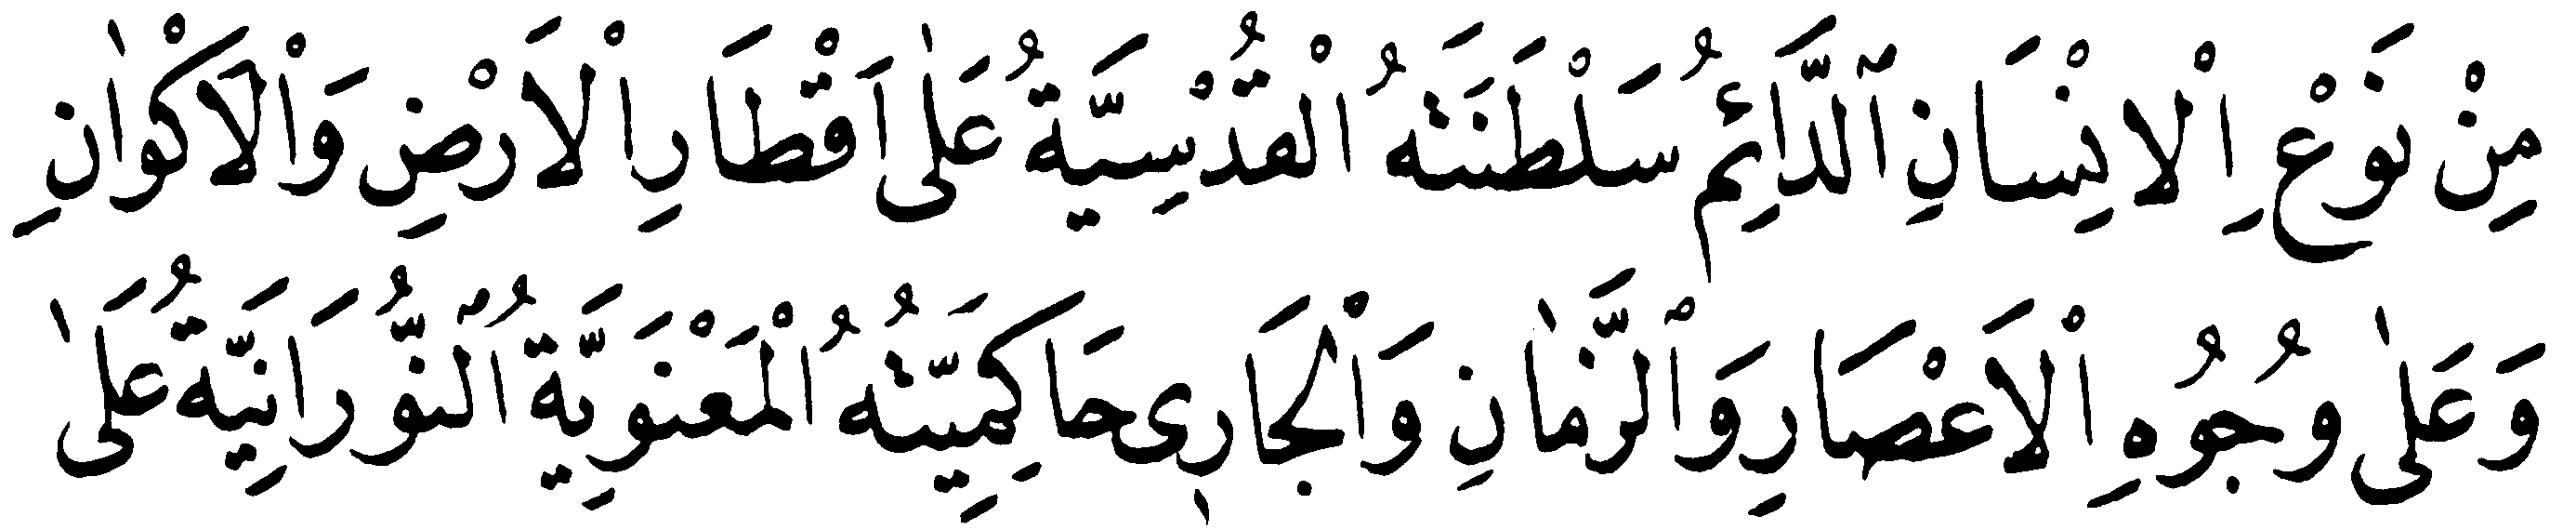 مِنْ نَوْعِ اْلاِنْسَانِ ٱلدَّائِمُ سَلْطَنَتُهُ الْقُدْسِيَّةُ عَلٰى اَقْطَارِ اْلاَرْضِ وَاْلاَكْوَانِ
وَعَلٰى وُجُوهِ اْلاَعْصَارِ وَٱلزَّمَانِ وَاْلجَارِى حَاكِمِيَّتُهُ الْمَعْنَوِيَّةُ ٱلنُّورَانِيَّةُ عَلٰى